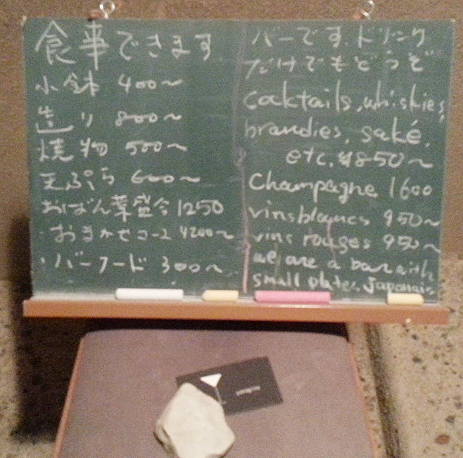 食事できます
小鉢 400〜
造り 800〜
焼物 500〜
天ぷら 600〜
おばん菜盛合 1250
おまかせコース 4200〜
・バーフード 300〜
バーです。ドリンク
だけでもどうぞ
cocktails, whiskies,
brandies, saké,
etc. ¥850〜
Champagne 1600
vins blancs 950〜
vins rouges 950〜
we are a bar with
small plates, Japonais